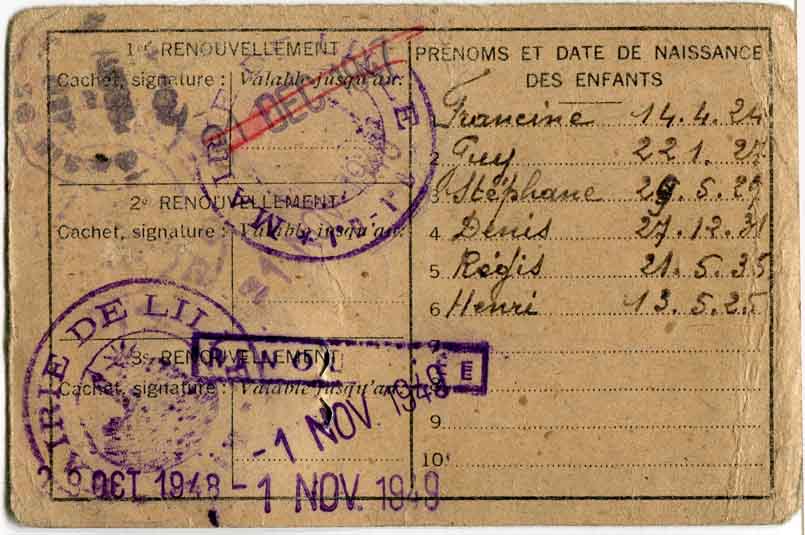 1er RENOUVELLEMENT
Cachet, signature : Valable jusqu'au:
1 DEC 1947
MAIRIE DE LILLE
2e RENOUVELLEMENT
Cachet, signature : Valable jusqu'au:
MAIRIE DE LIL
3e RENOUVELLEMENT
Cachet, signature : Valable jusqu'au:
-1 NOV. 1948
OCT 1948 -1 NOV. 1949
PRÉNOMS ET DATE DE NAISSANCE
DES ENFANTS
Francine 14.4.24
2 Guy 22 1. 27
3 Stéphane 29.5.29
4 Denis 27.12.31
5 Régis 21.5.35
6 Henri 13.5.25
7
8
9
10